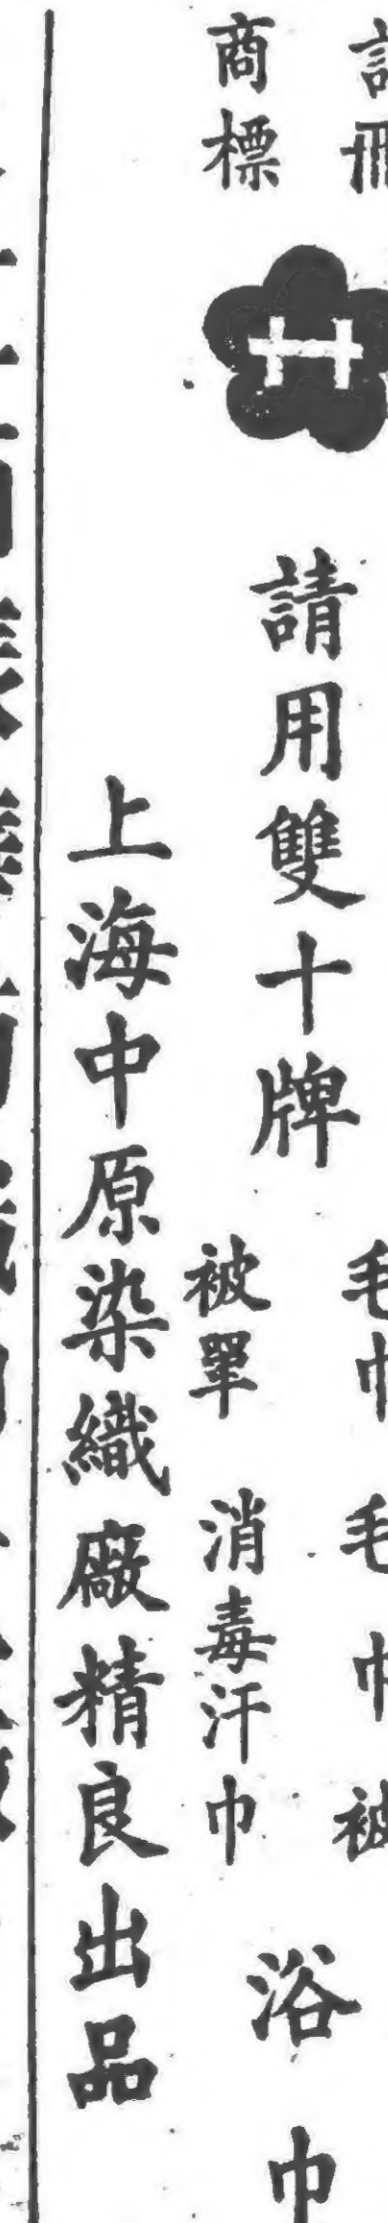 註冊
商標
請用雙十牌
毛巾 毛巾被
被單 消毒汗巾
浴巾
上海中原染織廠精良出品